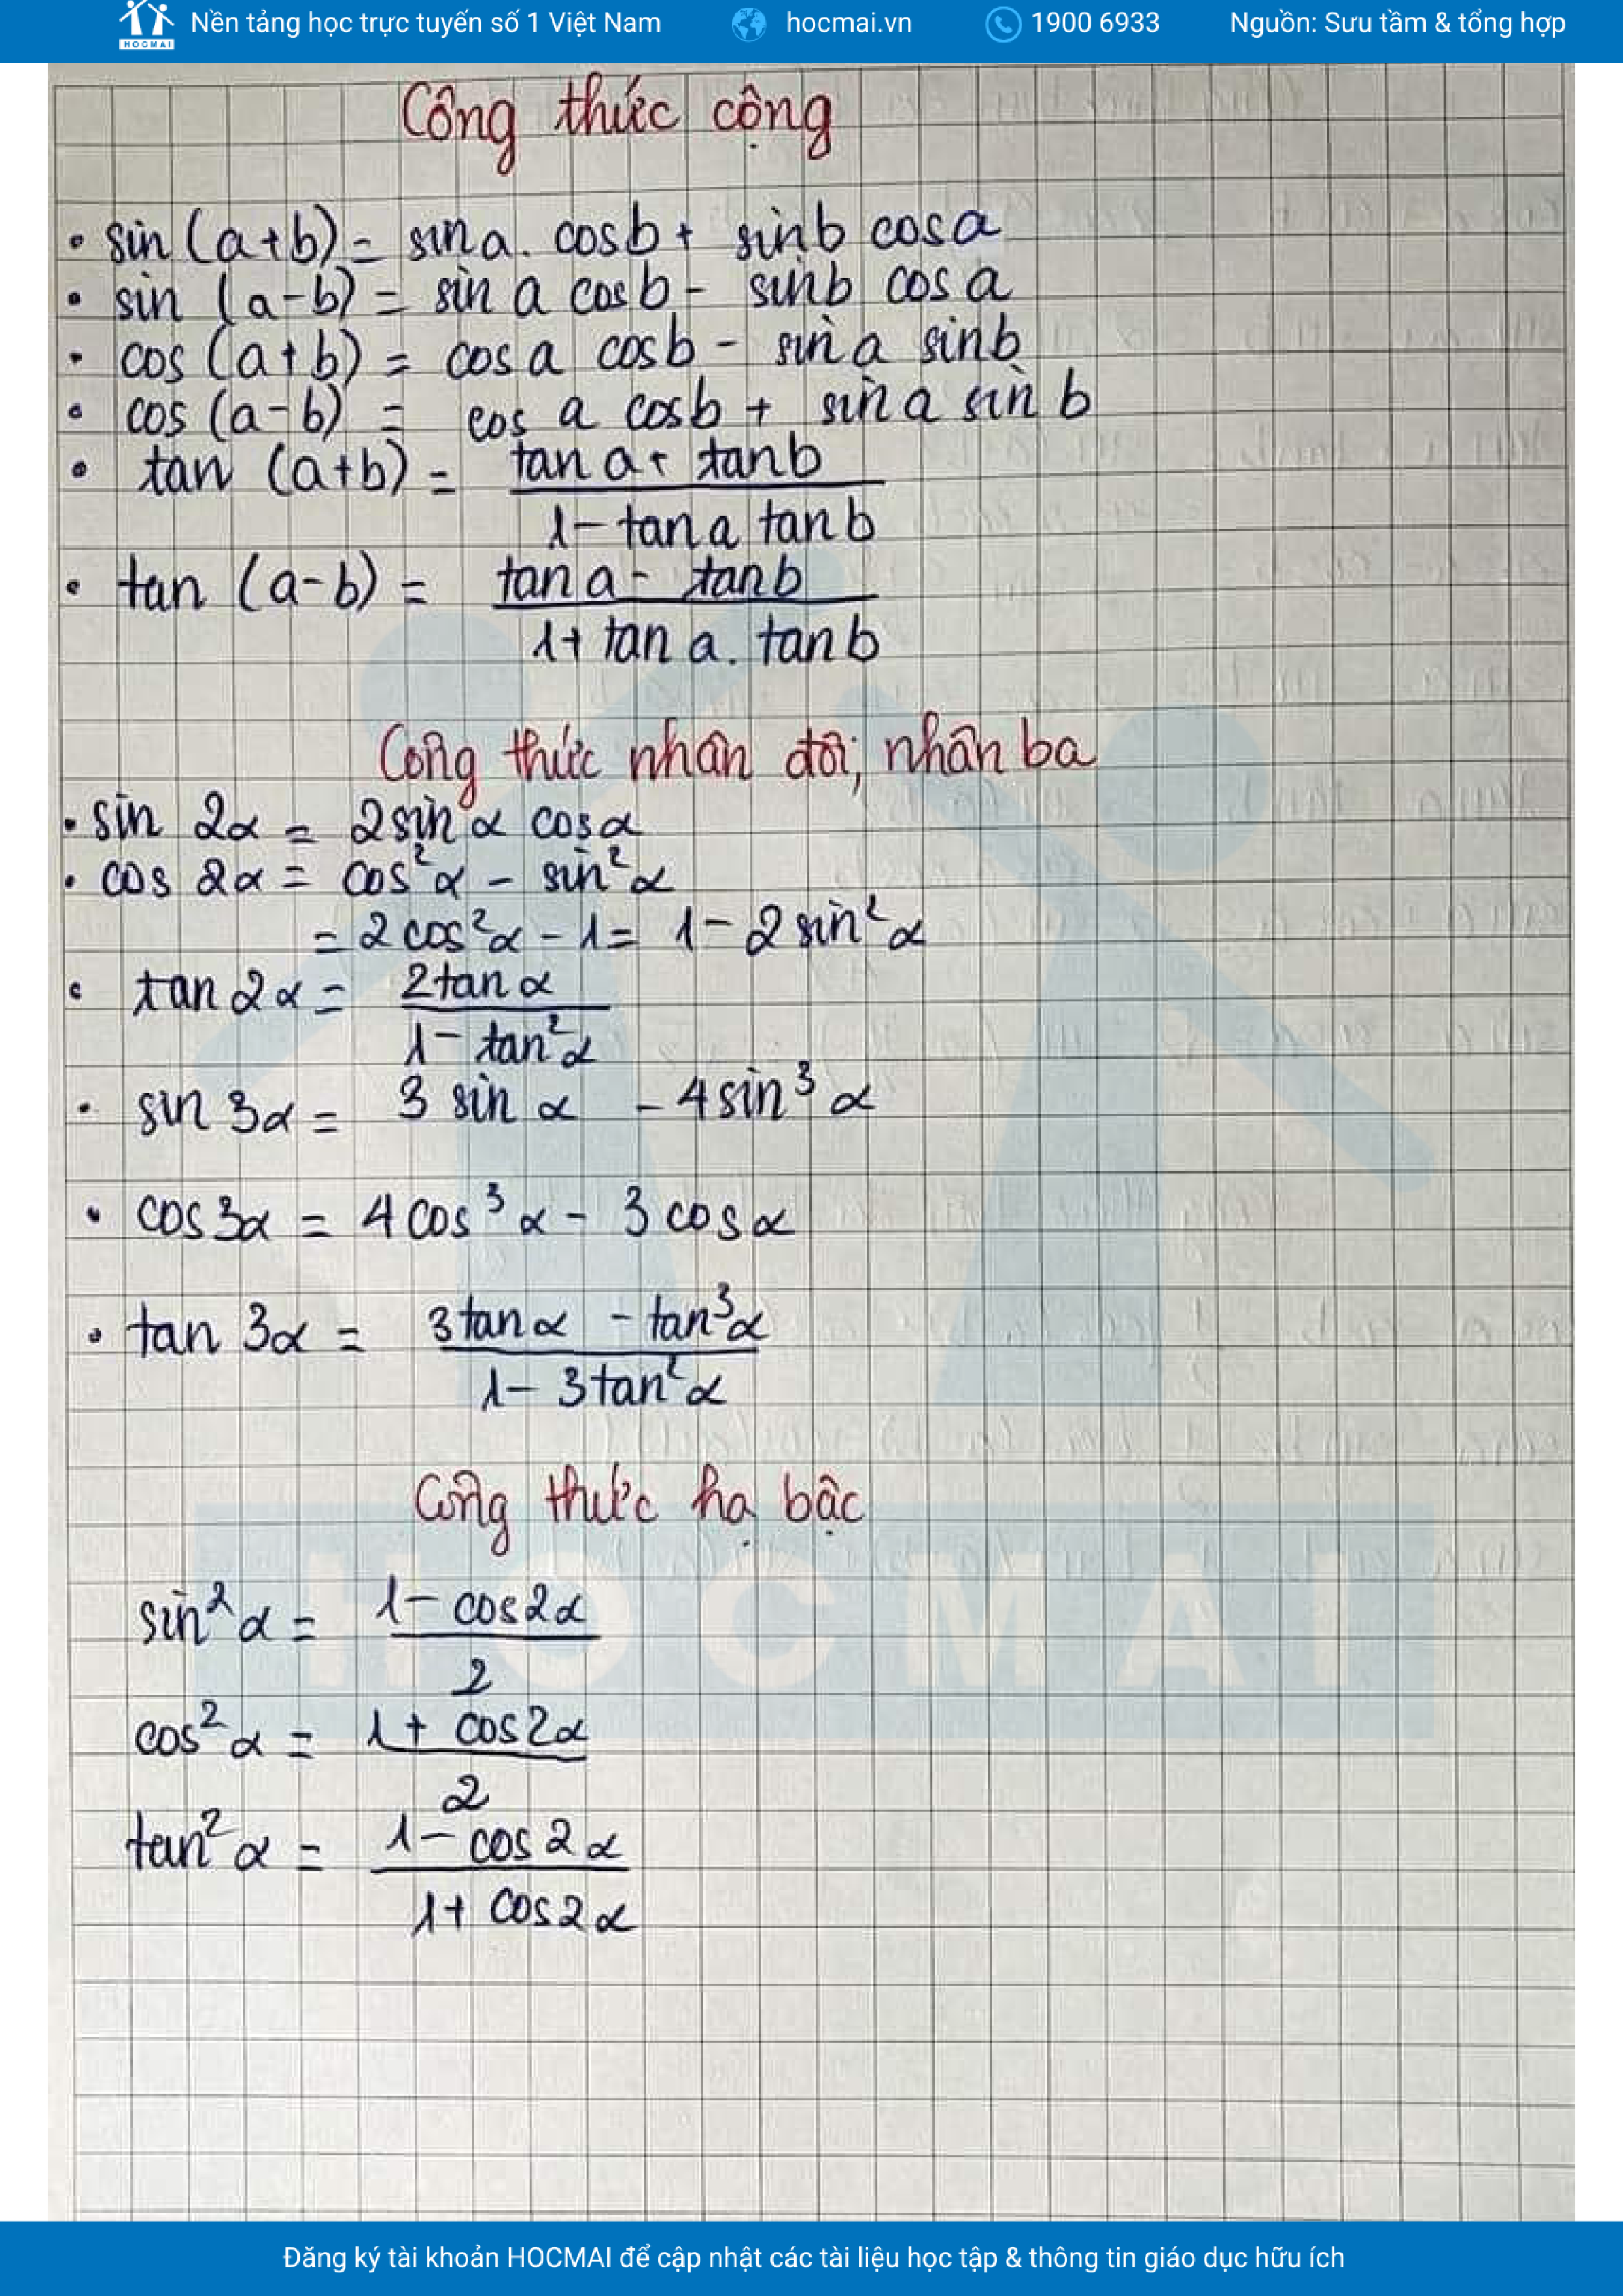 HOCMAI
Nền tảng học trực tuyến số 1 Việt Nam
hocmai.vn
1900 6933
Nguồn: Sưu tầm & tổng hợp
Công thức cộng
• sin (a+b) = sin a. cos b + sin b cos a
• sin (a-b) = sin a cos b - sin b cos a
• cos (a+b) = cos a cos b - sin a sin b
• cos (a-b) = cos a cos b + sin a sin b
• tan (a+b) = (tan a + tan b) / (1 - tan a tan b)
• tan (a-b) = (tan a - tan b) / (1 + tan a. tan b)
Công thức nhân đôi, nhân ba
• sin 2α = 2 sin α cos α
• cos 2α = cos²α - sin²α
= 2 cos²α - 1 = 1 - 2 sin²α
• tan 2α = 2 tan α / (1 - tan²α)
• sin 3α = 3 sin α - 4 sin³ α
• cos 3α = 4 cos³ α - 3 cos α
• tan 3α = (3 tan α - tan³α) / (1 - 3 tan²α)
Công thức hạ bậc
sin²α = (1 - cos 2α) / 2
cos²α = (1 + cos 2α) / 2
tan²α = (1 - cos 2α) / (1 + cos 2α)
HOCMAI
Đăng ký tài khoản HOCMAI để cập nhật các tài liệu học tập & thông tin giáo dục hữu ích